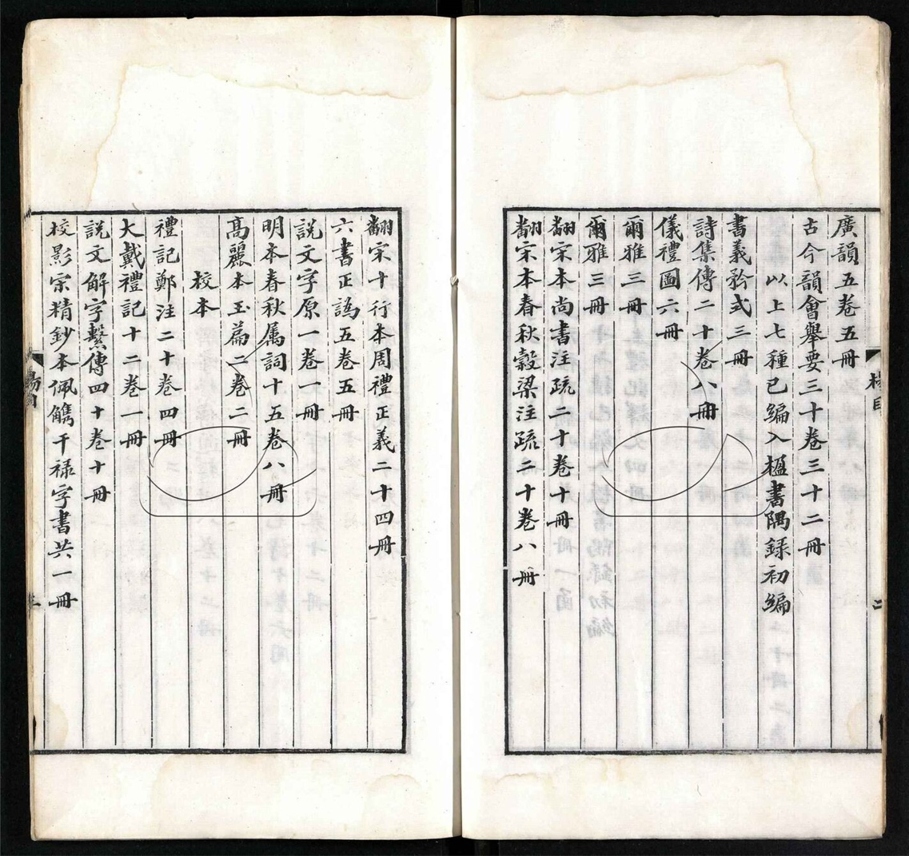 廣韻五卷五冊
古今韻會舉要三十卷三十二冊
以上七種已編入楹書隅録初編
書義矜式三冊
詩集傳二十卷八冊
儀禮圖六冊
爾雅三冊
爾雅三冊
翻宋本尚書注疏二十卷十冊
翻宋本春秋穀梁注疏二十卷八冊
翻宋十行本周禮正義二十四冊
六書正譌五卷五冊
說文字原一卷一冊
明本春秋属詞十五卷八冊
高麗本玉篇二卷二冊
校本
禮記鄭注二十卷四冊
大戴禮記十二卷一冊
說文解字繫傳四十卷十冊
校影宗精鈔本佩觿干禄字書共一冊